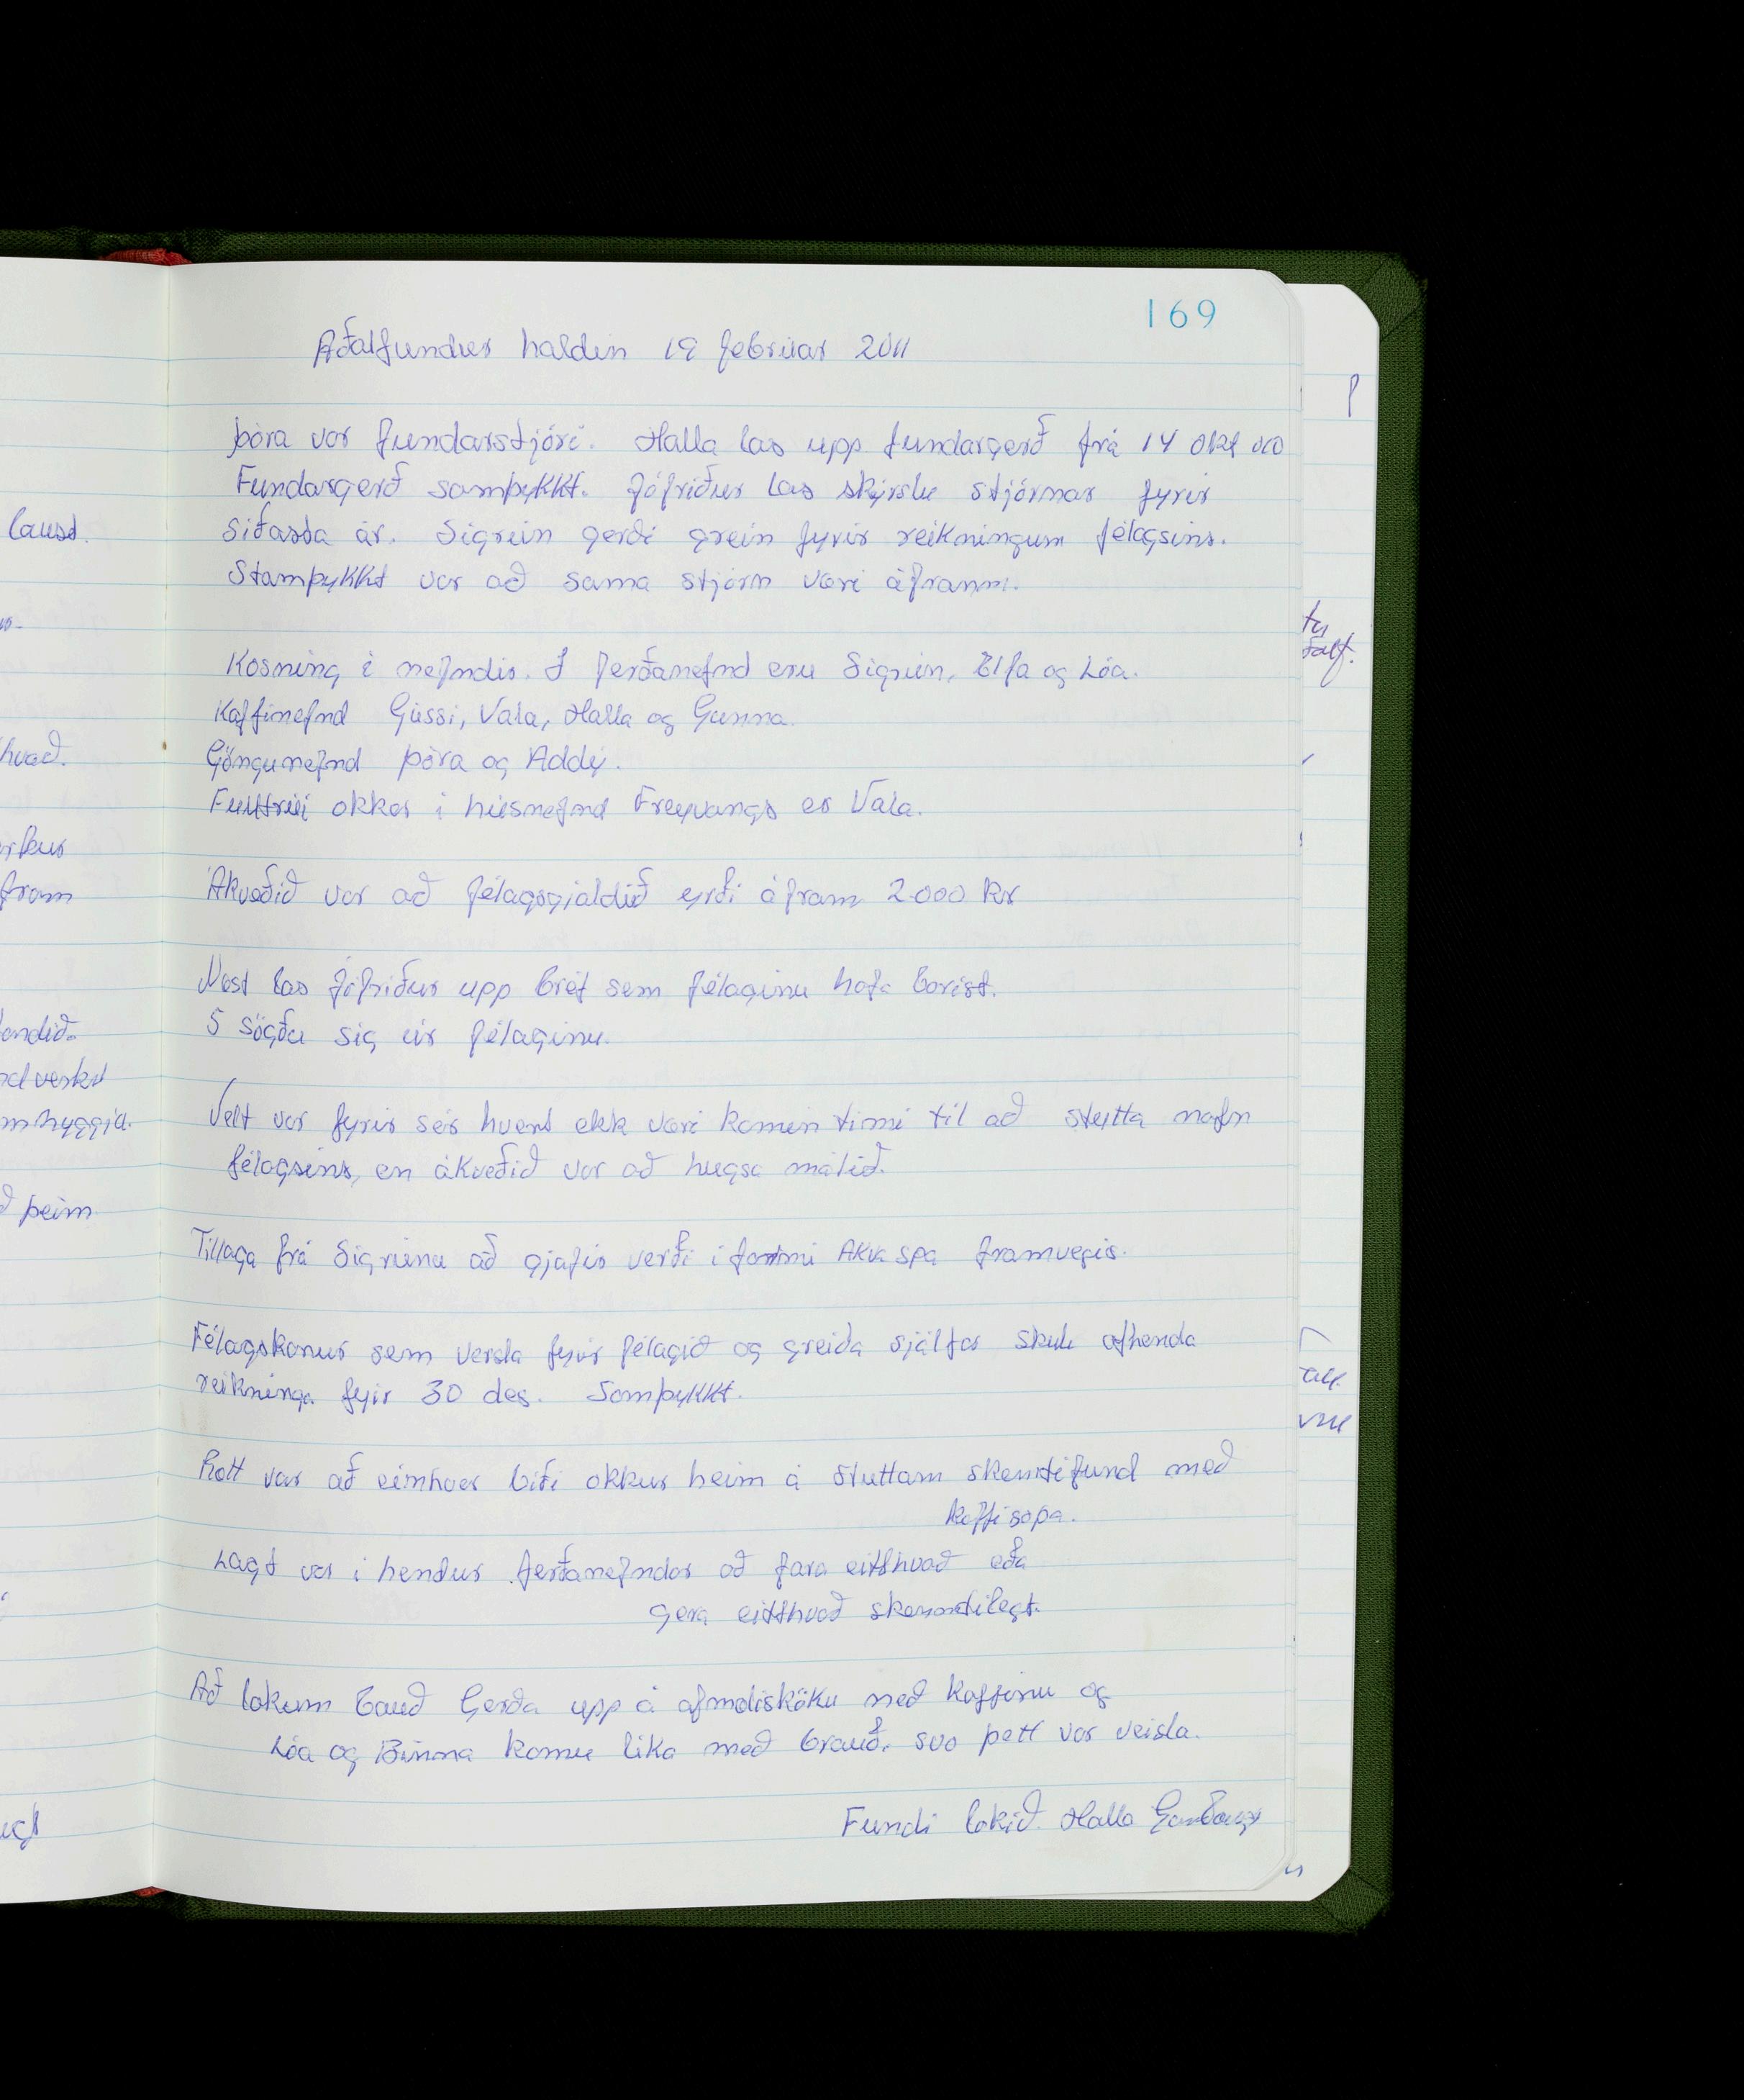 169
Aðalfundur haldin 19 febrúar 2011
Þóra var fundarstjóri. Halla las upp fundargerð frá 14 okt
Fundargerð samþykkt. Jófríður las skýrslu stjórnar fyrir
síðasta ár. Sigrún gerði grein fyrir reikningum félagsins.
Stamþykkt var að sama stjórn væri áframm.
Kosning í nefndir. Í ferðanefnd eru Sigrún, Elfa og Lóa.
Kaffinefnd Gússí, Vala, Halla og Gunna.
Göngunefnd Þóra og Addý.
Fulltrúi okkar í húsnefnd Freyvangs er Vala.
Ákveðið var að félagsgjaldið yrði áfram 2.000 kr
Næst las Jófríður upp bréf sem félaginu hafa borist.
5 sögðu sig úr félaginu.
Velt var fyrir sér hvert ekk væri komin timi til að stytta nafn
félagsins, en ákveðið var að hugsa málið.
Tillaga frá Sigrúnu að gjafir verði í formi Akva spa framvegis.
Félagskonur sem versla fyrir félagið og greiða sjálfar skulu afhenda
reikninga fyir 30 des. Samþykkt.
Rætt var að einhver biði okkur heim á stuttam skemtifund með
kaffisopa.
Lagt var í hendur ferðanefndar að fara eitthvað eða
gera eitthvað skemmtilegt.
Að lokum bauð Gerða upp á afmæliskôku með kaffinu og
Lóa og Binna komu líka með brauð, svo þett var veisla.
Fundi lokið. Halla
laust.
hvað.
fram
þeim